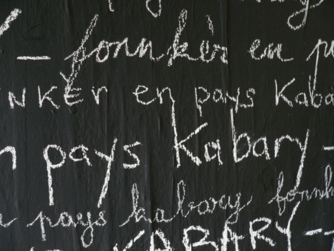 – fonnkèr en
NKÈR en pays Kaba
pays Kabary –
pays kabary fonnk
KABARY –